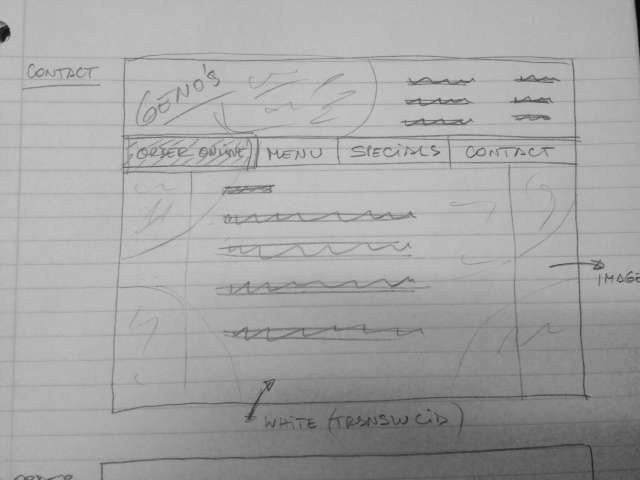 CONTACT
GENO'S
ORDER ONLINE MENU SPECIALS CONTACT
IMAGE
WHITE (TRANSLUCID)
ORDER